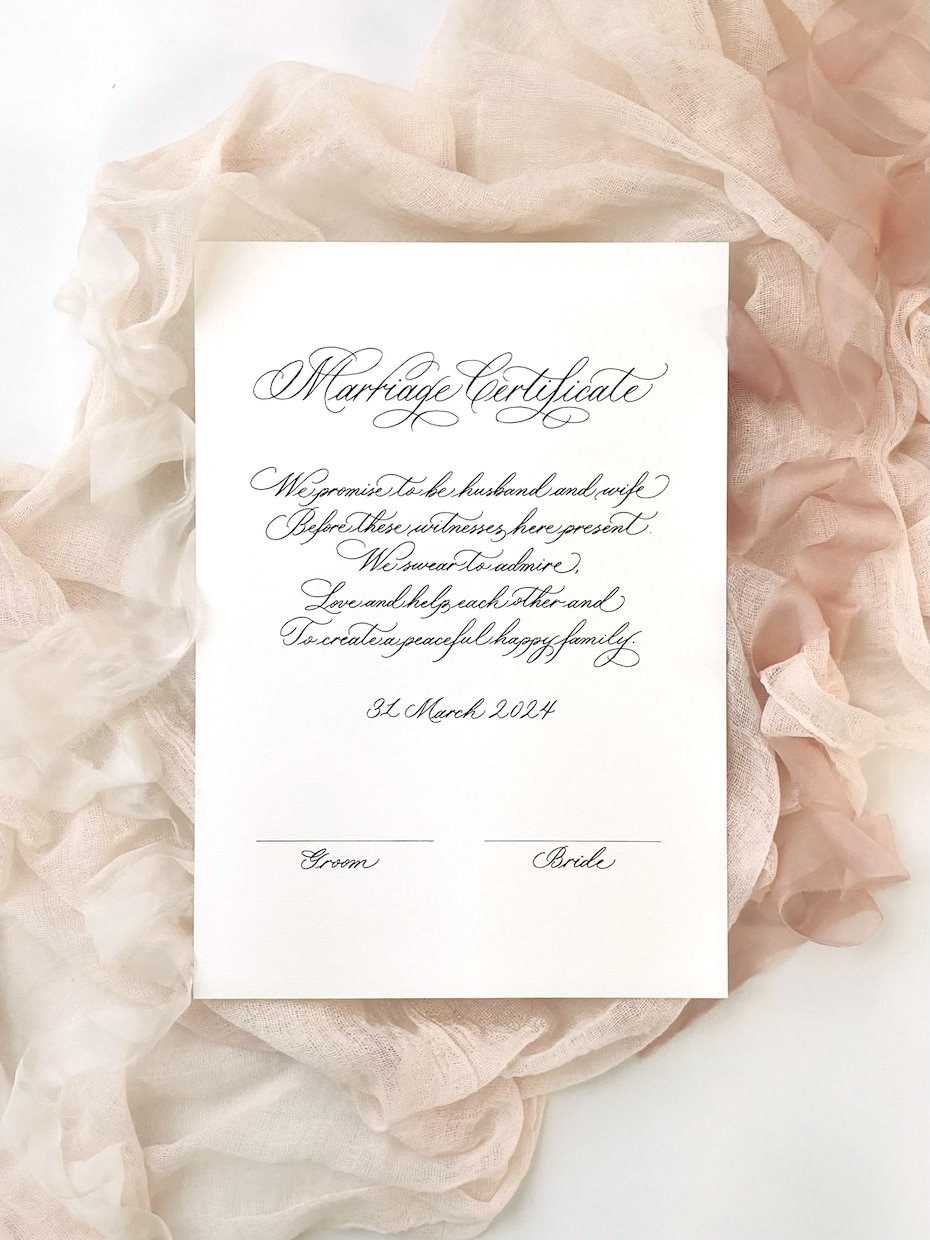 Marriage Certificate
We promise to be husband and wife
Before these witnesses here present.
We swear to admire,
Love and help each other and
To create a peaceful happy family.
31 March 2024
Groom
Bride